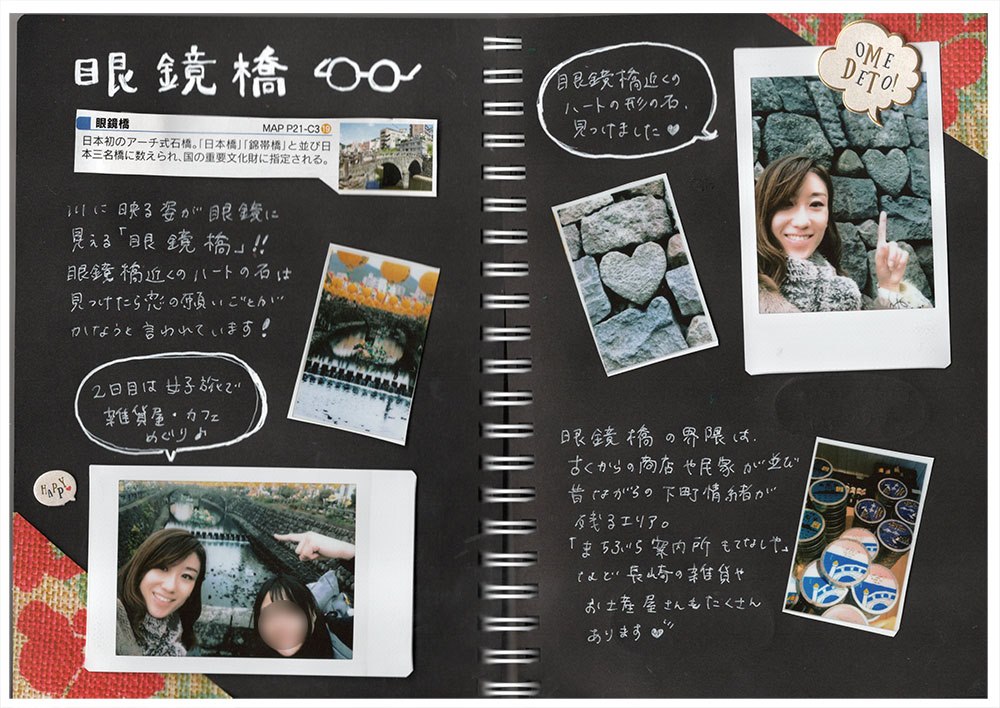 眼鏡橋
眼鏡橋 MAP P21-C3 19
日本初のアーチ式石橋。「日本橋」「錦帯橋」と並び日
本三名橋に数えられ、国の重要文化財に指定される。
川に映る姿が眼鏡に
見える「眼鏡橋」!!
眼鏡橋近くのハートの石は
見つけたら恋の願いごとが
かなうと言われています!
2日目は女子旅で
雑貨屋・カフェ
めぐり♪
HAPPY
眼鏡橋近くの
ハートの形の石、
見つけました♥
OME
DETO!
眼鏡橋の界隈は、
古くからの商店や民家が並び
昔ながらの下町情緒が
残るエリア。
「まちぶら案内所 もてなしや」
など長崎の雑貨や
お土産屋さんもたくさん
あります♥